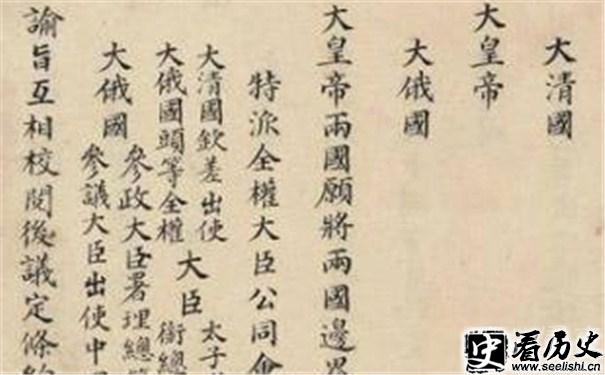 大清國
大皇帝
大俄國
大皇帝兩國願將兩國邊界
特派全權大臣公同會
大清國欽差出使
大俄國頭等全權
大臣
太子
銜總
大俄國
參政大臣署理總
參議大臣出使中
諭旨互相校閱後議定條約
看历史
www.seelishi.cn